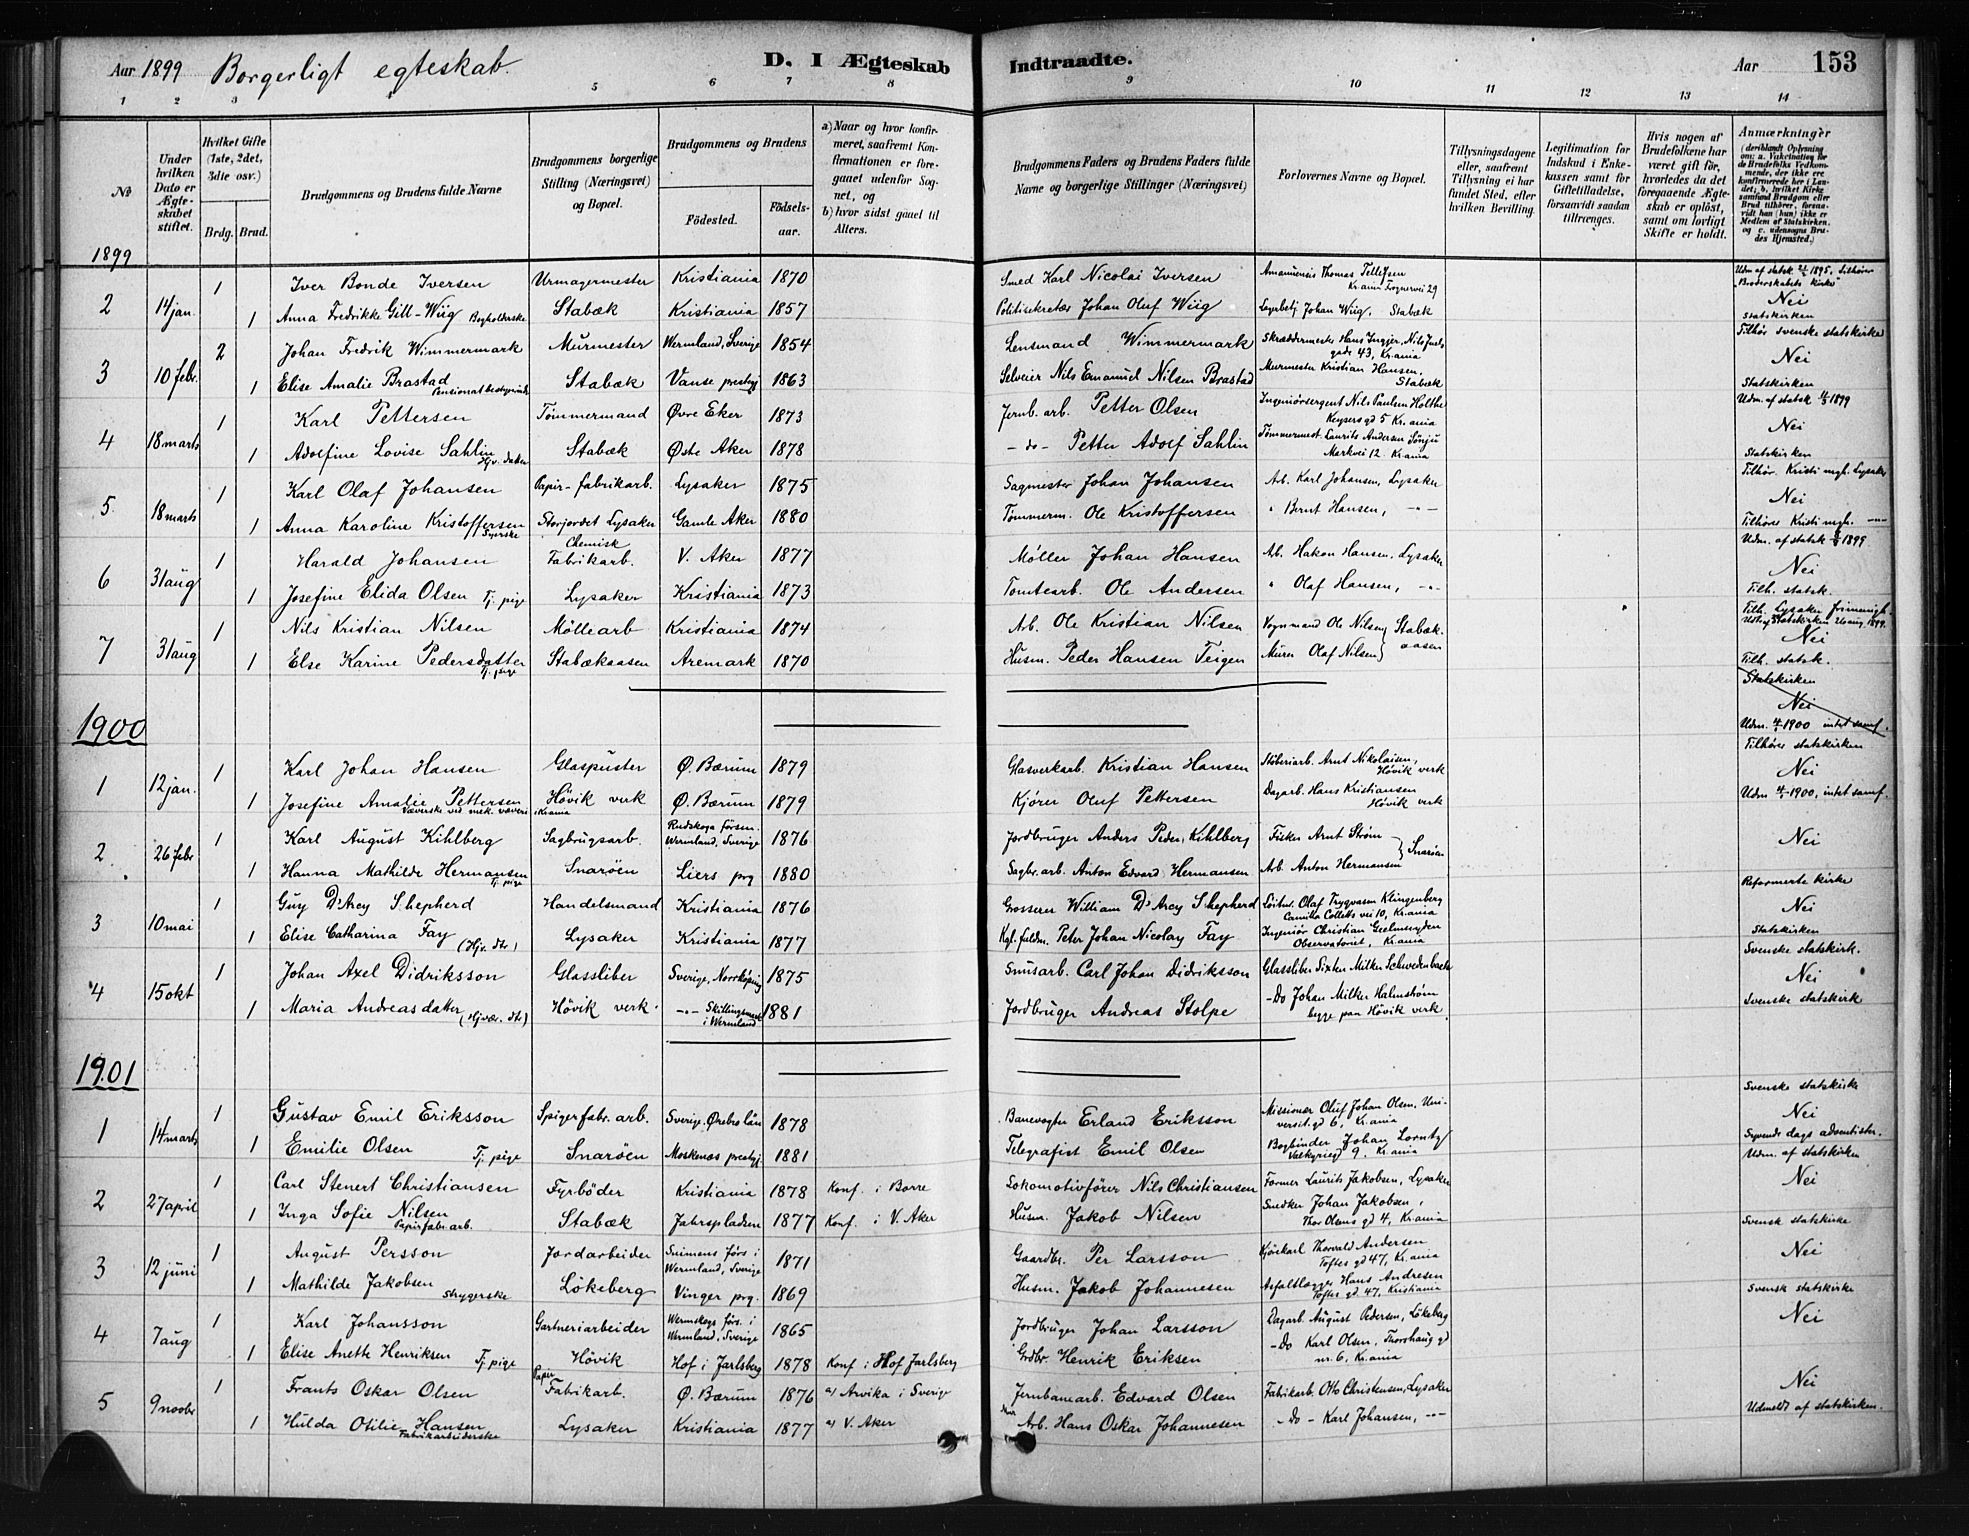 Aar 1899 Borgerligt egteskab.
D. I Ægteskab Indtraadte.
Aar 153
1 2 3 5 6 7 8 9 10 11 12 13 14
No
Under hvilken Dato er Ægteskabet stiftet.
Hvilket Gifte (1ste, 2det, 3die osv.)
Brdg. Brud.
Brudgommens og Brudens fulde Navne
Brudgommens borgerlige Stilling (Næringsvei) og Bopæl.
Brudgommens og Brudens
Fødested.
Fødselsaar.
a) Naar og hvor konfirmeret, saafremt Konfirmationen er foregaaet udenfor Sognet, og
b) hvor sidst gaaet til Alters.
Brudgommens Faders og Brudens Faders fulde Navne og borgerlige Stillinger (Næringsvei)
Forlovernes Navne og Bopæl.
Tillysningsdagene eller, saafremt Tillysning ei har fundet Sted, efter hvilken Bevilling.
Legitimation for Indskud i Enkekassen samt for Giftetilladelse, forsaavidt saadan tiltrænges.
Hvis nogen af Brudefolkene har været gift før, hvorledes da det foregaaende Ægteskab er opløst, samt om lovligt Skifte er holdt.
Anmærkninger (deriblandt Oplysning om: a. Vakcination for de Brudefolks Vedkommende, der ikke ere konfirmerede her i Landet; b. hvilket Kirkesamfund Brudgom eller Brud tilhører, forsaavidt han (hun) ikke er Medlem af Statskirken, og c. udensogns Brudes Hjemsted.)
1899
2 14 jan. 1 Iver Bonde Iversen Urmagermester Kristiania 1870 Smed Karl Nicolai Iversen Amanuensis Thomas Tellefsen Kr.ania Frognervei 29 Udm af statsk 1895. Tilhører "Broderskabets kirke"
1 Anna Fredrikke Gill-Wiig Bogholderske Stabæk Kristiania 1857 Politisekretær Johan Oluf Wiig Johan Wiig, Stabæk Nei Statskirken
3 10 febr. 2 Johan Fredrik Wimmermark Murmester Wermland, Sverige 1854 Lensmand Wimmermark Skræddermester Hans Ingjer, Nils Juels gade 43, Kr.ania Tilhør svenske statskirke
1 Elise Amalie Brastad Pensionatbestyrinde Stabæk Vanse prestgj 1863 Selveier Nils Emanuel Nilsen Brastad Murmester Kristian Hansen, Stabæk Nei Statskirken
4 18 marts 1 Karl Pettersen Tømmermand Øvre Eker 1873 Jernb. arb. Petter Olsen Ingeniørsergent Nils Paulsen Holthe Keysers gd 5 Kr.ania Udm. af statsk 1899
1 Adolfine Lovise Sahlin Hjv. datter Stabæk Østre Aker 1878 -do- Petter Adolf Sahlin Tømmermest. Laurits Andersen Markvei 12 Kr.ania Nei Statskirken
5. 18 marts 1 Karl Olaf Johansen Papir-fabrikarb. Lysaker 1875 Sagmester Johan Johansen Arb. Karl Johansen, Lysaker Tilhør. Kristi mgh. Lysaker
1 Anna Karoline Kristoffersen Syerske Storjordet Lysaker Gamle Aker 1880 Tømmerm. Ole Kristoffersen " Bernt Hansen, -"- Nei Tilhører Kristi mgh. -"-
6 31 aug 1 Harald Johansen Chemisk Fabrikarb. V. Aker 1877 Møller Johan Hansen Arb. Hakon Hansen, Lysaker Udm. af statsk 1899
1 Josefine Elida Olsen Tj. pige Lysaker Kristiania 1873 Tomtearb. Ole Andersen " Olaf Hansen, -"- Nei Tilh. statsk.
7 31 aug 1 Nils Kristian Nilsen Møllearb Kristiania 1874 Arb. Ole Kristian Nilsen Vognmand Ole Nilsen Stabæk. Tilh. Lysaker frimenigh. Udt af Statskirken 26 aug 1899.
1 Else Karine Pedersdatter Tj. pige Stabækaasen Aremark 1870 Husm. Peder Hansen Teigen Murer Olaf Nilsen aasen Nei Tilh. statsk.
Statskirken
Nei
Udm. 1900 intet samf.
1900
1 12 jan. 1 Karl Johan Hansen Glaspuster Ø. Bærum 1879 Glasverkarb. Kristian Hansen Støberiarb. Arnt Nikolaisen, Høvik verk Tilhører statskirken
1 Josefine Amalie Pettersen Væverske ved mek. væveri i Kr.ania Høvik verk Ø. Bærum 1879 Kjører Oluf Pettersen Dagarb. Hans Kristiansen Høvik verk Nei Udm 1900, intet samf.
2 26 febr 1 Karl August Kihlberg Sagbrugsarb. Rudskoga førsm. Wermland, Sverige 1876 Jordbruger Anders Peder Kihlberg Fisker Arnt Strøm Snarøen Nei
1 Hanna Mathilde Hermansen Tj. pige Snarøen Liers prg 1880 Sagbr. arb. Anton Edvard Hermansen Arb. Anton Hermansen
3 10 mai 1 Guy D'Arcy Shepherd Handelsmand Kristiania 1876 Grosserer William D'Arcy Shepherd Løitn. Olaf Trygvason Klingenberg Camilla Colletts vei 10, Kr.ania Reformerte kirke
1 Elise Catharina Fay (Hjv. dtr) Lysaker Kristiania 1877 Kgl. fuldm. Peter Johan Nicolay Fay Ingeniør Christian Geelmuyden Observatoriet, Kr.ania Nei Statskirken
4 15 okt 1 Johan Axel Didriksson Glassliber Sverige, Norrköping 1875 Snusarb. Carl Johan Didriksson Glassliber Sixten Milker Schwedenback Svenske statskirk.
1 Maria Andreasdatter (Hjvær. dtr) Høvik verk -"- Skillingsmark i Wermland 1881 Jordbruger Andreas Stolpe -Do Johan Milker Halmstrøm begge paa Høvik verk Nei Svenske statskirk
1901
1 14 marts 1 Gustav Emil Eriksson Spigerfabr. arb. Sverige. Ørebro län 1878 Banevogter Erland Eriksson Missionær Oluf Johan Olsen, Universit. gd 6, Kr.ania Svenske statskirke
1 Emilie Olsen Tj. pige Snarøen Moskenæs prestgj. 1881 Telegrafist Emil Olsen Bogbinder Johan Lorntz Valkyriegd 9. Kr.ania Nei Syvende dags adventister. Udm. af statskirken
2 27 april 1 Carl Stenert Christiansen Fyrbøder Kristiania 1878 Konf. i Borre Lokomotivfører Nils Christiansen Former Laurits Jakobsen, Lysaker Nei
1 Inga Sofie Nilsen Papirfabr. arb. Stabæk Jahrspladsen 1877 Konf. i V. Aker Husm. Jakob Nilsen Snedker Johan Jakobsen, Thor Olsens gd 4, Kr.ania Svensk statskirke
3 12 juni 1 August Persson Jordarbeider Wermland, Sverige 1871 Gaardbr. Per Larsson Kjørkarl Thorvald Andersen Toftes gd 47, Kr.ania Nei
1 Mathilde Jakobsen strygerske Løkeberg Vinger prg. 1869 Husm. Jakob Johannesen Asfaltlægger Hans Andresen Toftes gd 47, Kristiania Svensk statskirke
4 7 aug 1 Karl Johansson Gartneriarbeider Wermskogs førs. i Wermland, Sverige 1865 Jordbruger Johan Larsson Dagarb. August Pedersen, Løkeberg Nei
1 Elise Anette Henriksen Tj. pige Høvik Hof i Jarlsberg 1878 Konf. i Hof Jarlsberg Grdbr. Henrik Eriksen -Do Karl Olsen, Thorshaug gd nr. 6, Kr.ania
5 9 novbr 1 Frants Oskar Olsen Papir Fabrikarb. Ø. Bærum 1876 a) Arvika i Sverige Jernbanarb. Edvard Olsen Fabrikarb. Otto Christensen, Lysaker Nei
1 Hulda Otilie Hansen Fabrikarbeiderske Lysaker Kristiania 1877 a) V. Aker Arb. Hans Oskar Johannesen -Do- Karl Johansen, -"- Udmeldt af statskirken.